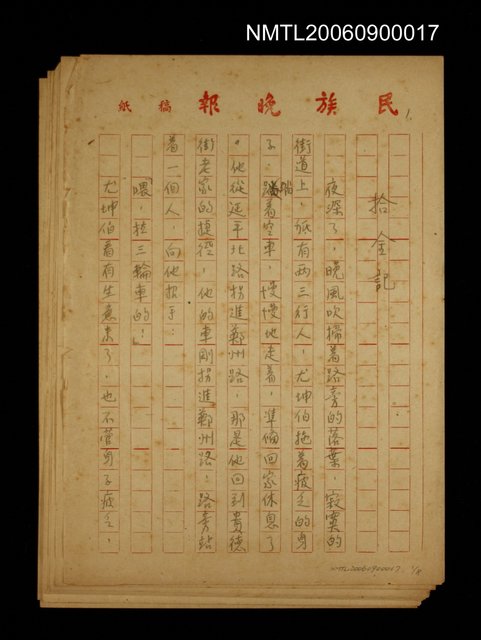 NMTL20060900017
民族晚報 稿紙
1.
拾金記
夜深了，晚風吹掃着路旁的落葉，寂寞的
街道上，祇有兩三行人，尤坤伯拖着疲乏的身
子，踏着空車，慢慢地走着，準備回家休息了
。他從延平北路拐進鄭州路，那是他回到貴德
街老家的捷徑，他的車剛拐進鄭州路，路旁站
着一個人，向他招手：
「喂！拉三輪車的！」
尤坤伯看有生意來了，也不管身子疲乏，
NMTL20060900017 1/8